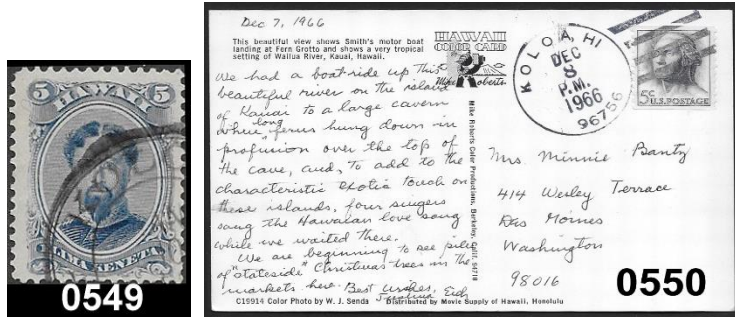 5 HAWAII 5
ELIMA KENETA
0549
Dec 7, 1966
This beautiful view shows Smith's motor boat
landing at Fern Grotto and shows a very tropical
setting of Wailua River, Kauai, Hawaii.
HAWAII
COLOR CARD
Mike Roberts
We had a boat ride up this
beautiful river on the island
of Kauai to a large cavern
where long ferns hung down in
profusion over the top of
the cave, and, to add to the
characteristic exotic touch on
these islands, four singers
sang the Hawaiian love song
while we waited there.
We are beginning to see piles
of "stateside" Christmas trees in the
markets here. Best wishes,
C19914 Color Photo by W. J. Senda
Distributed by Movie Supply of Hawaii, Honolulu
Mike Roberts Color Productions, Berkeley, Calif. 94710
KOLOA, HI
DEC
8
P.M.
1966
96756
5¢
U.S. POSTAGE
Mrs Minnie Bantz
414 Wesley Terrace
Des Moines
Washington
98016
0550